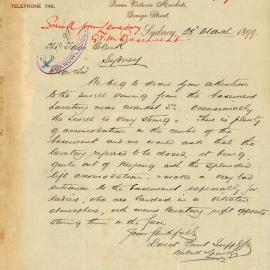 TELEPHONE 746.
Queen Victoria Markets,
George Street,
Smell from lavatory
Q.V.M. Basements
Sydney, 25th March 1899.
The Town Clerk
Sydney
Dear Sir
We beg to draw your attention
to the smell coming from the basement
lavatory near Market St. Occasionally
the smell is very strong. There is plenty
of accomodation in the centre of the
basement and we would ask that the
lavatory referred to be closed, it being
quite out of keeping with the splendid
left accomodation & makes a very bad
entrance to the basement especially for
ladies, who are landed in a vitiated
atmosphere, with mens lavatory right opposite
staring them in the face.
Yours faithfully
Fruit